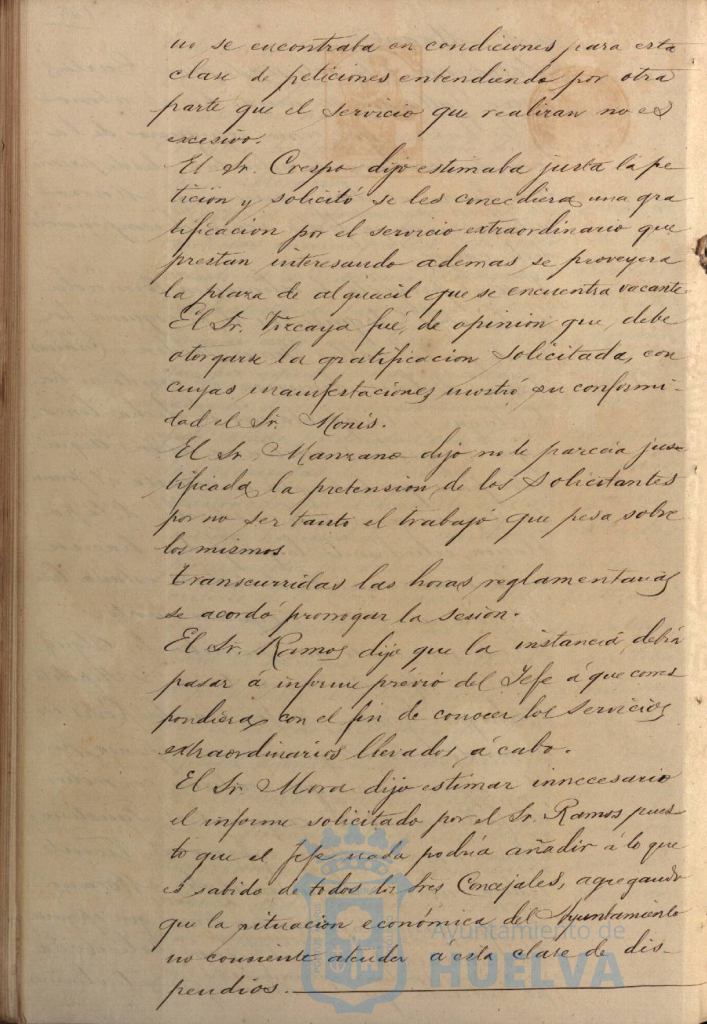 no se encontraba en condiciones para esta
clase de peticiones entendiendo por otra
parte que el servicio que realizan no es
excesivo.
El Sr. Crespo dijo estimaba justa la pe
ticion y solicitó se les concediera una gra
tificacion por el servicio extraordinario que
prestan interesando ademas se proveyera
la plaza de alguacil que se encuentra vacante
El Sr. Vizcaya fué, de opinion que, debe
otorgarse la gratificacion solicitada, con
cuyas manifestaciones mostró su conformi-
dad el Sr. Monis.
El Sr. Manzano dijo no le parecia jus-
tificada, la pretension, de los solicitantes
por no ser tanto el trabajó que pesa sobre
los mismos
Transcurridas las horas reglamentarias
se acordó prorrogar la sesion.
El Sr. Ramos dijo que la instancia, debia
pasar á informe prévio del Jefe á que corres
pondiera, con el fin de conocer los servicios
extraordinarios llevados á cabo.
El Sr. Mora dijo estimar innecesario
el informe solicitado por el Sr. Ramos pues-
to que el Jefe nada podría añadir á lo que
es sabido de todos los Sres Concejales, agregando
que la situacion económica del Ayuntamiento
no consiente atender á esta clase de dis-
pendios.
Ayuntamiento de
HUELVA